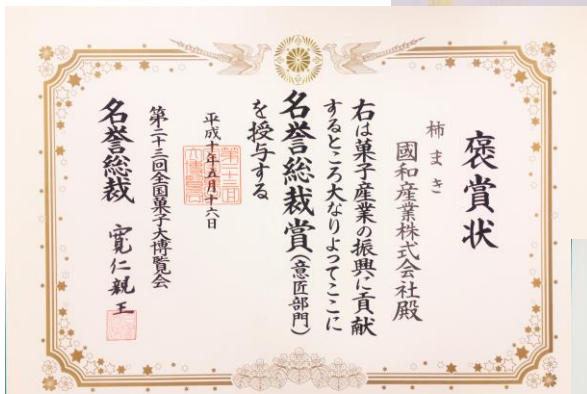 褒賞状
柿まき
國和産業株式会社殿
右は菓子産業の振興に貢献
するところ大なりよってここに
名誉総裁賞(意匠部門)
を授与する
平成十年五月十六日
第二十三回全国菓子大博覧会
名誉総裁 寛仁親王